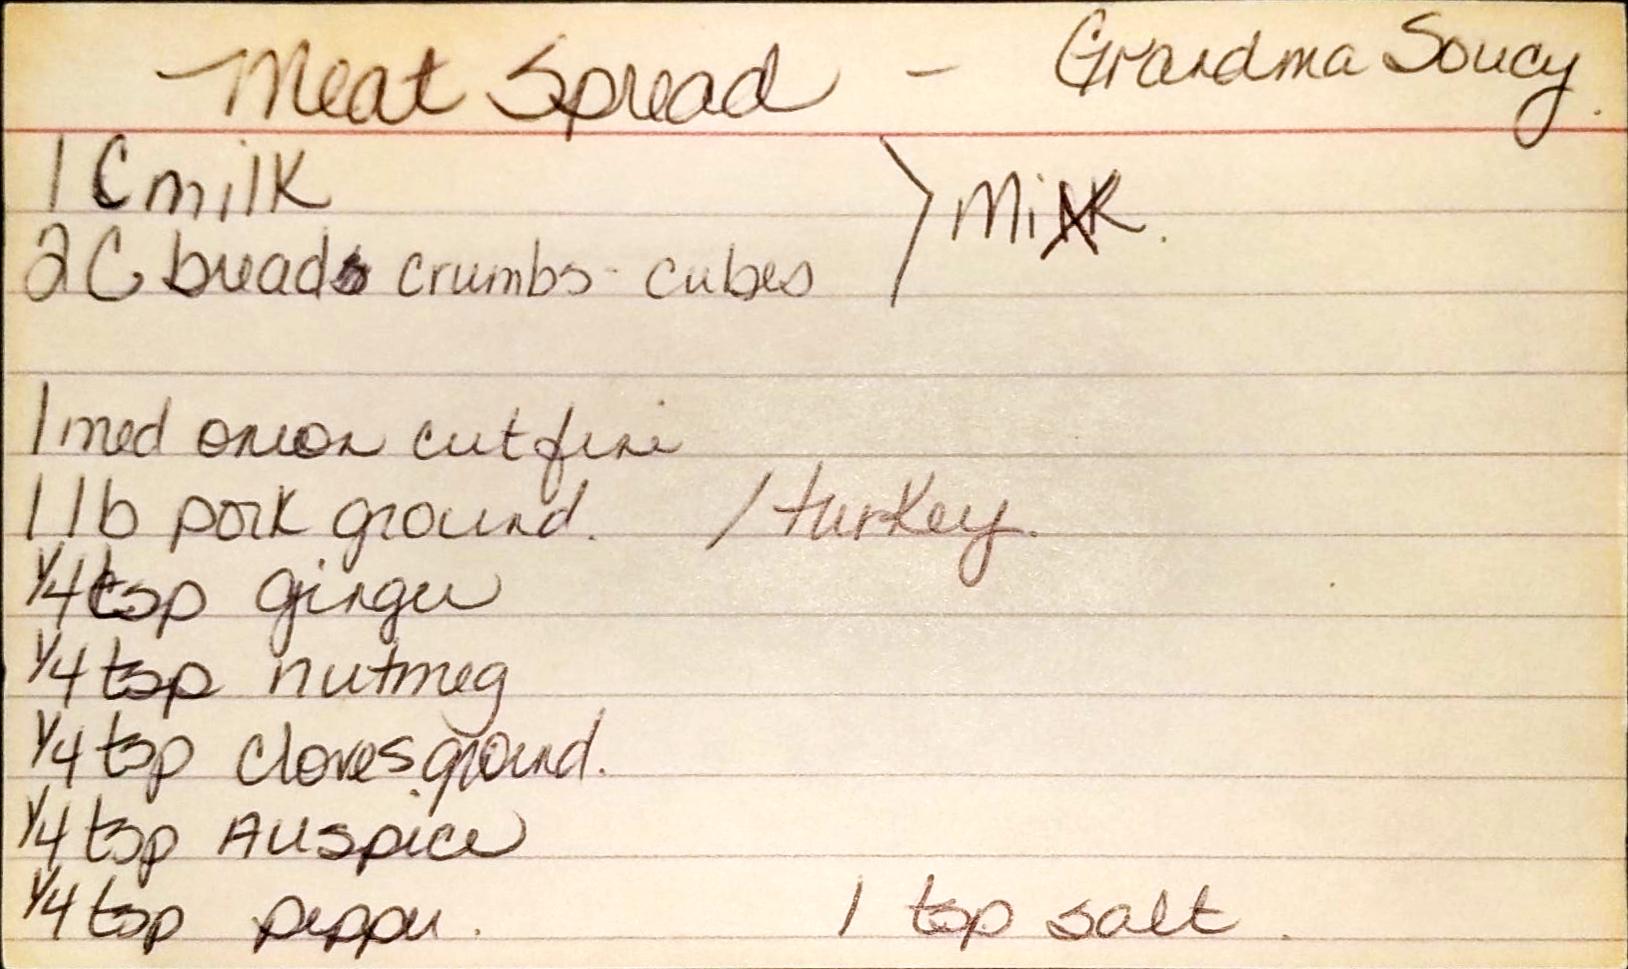 Meat Spread - Grandma Soucy.
1 C milk
2 C bread crumbs - cubes > Mix.
1 med onion cut fine
1 lb pork ground. / turkey.
1/4 tsp ginger
1/4 tsp nutmeg
1/4 tsp cloves ground.
1/4 tsp Allspice
1/4 tsp pepper. 1 tsp salt.